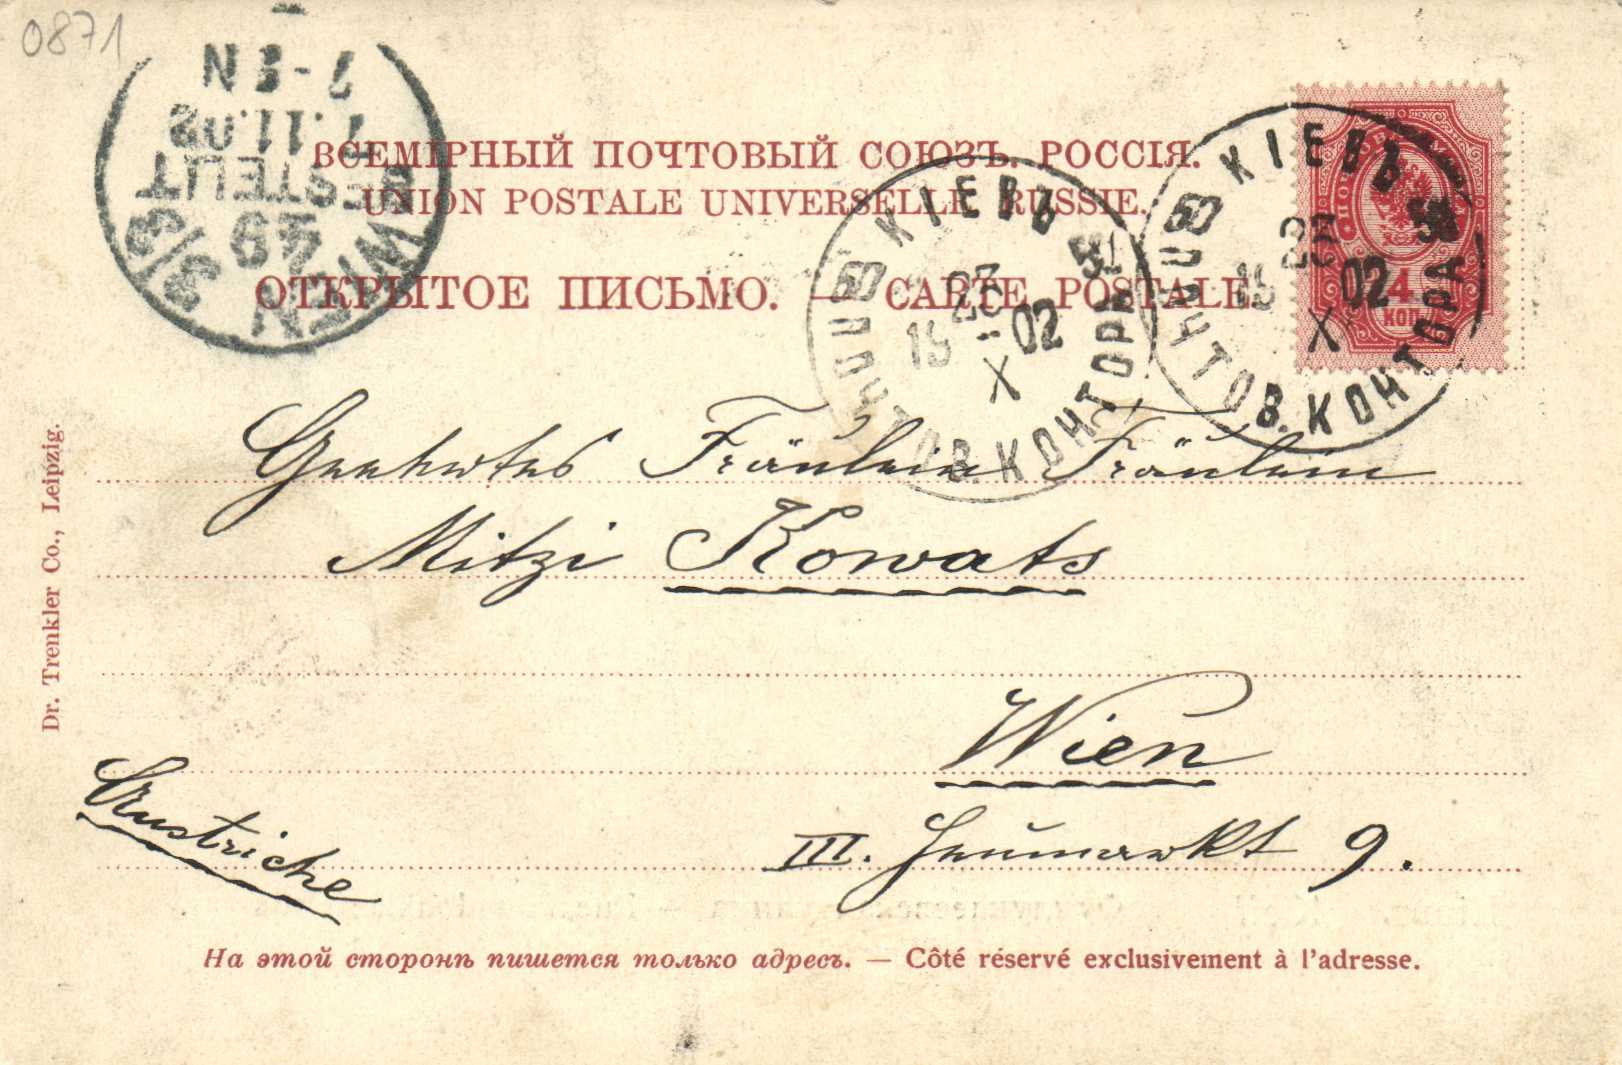 0871
ВСЕМІРНЫЙ ПОЧТОВЫЙ СОЮЗЪ. РОССІЯ.
UNION POSTALE UNIVERSELLE RUSSIE.
ОТКРЫТОЕ ПИСЬМО. — CARTE POSTALE.
WIEN 3/3
49
BESTELLT
.11.02
N
КІЕВЪ
23 51
19 02
X
ПОЧТОВ. КОНТОРА
КІЕВЪ
19 02
X
ПОЧТОВ. КОНТОРА
4
КОП
Geehrtes Fräulein Fräulein
Mitzi Kowats
Wien
III. Heumarkt 9.
Austriche
Dr. Trenkler Co., Leipzig.
На этой сторонѣ пишется только адресъ. — Côté réservé exclusivement à l'adresse.